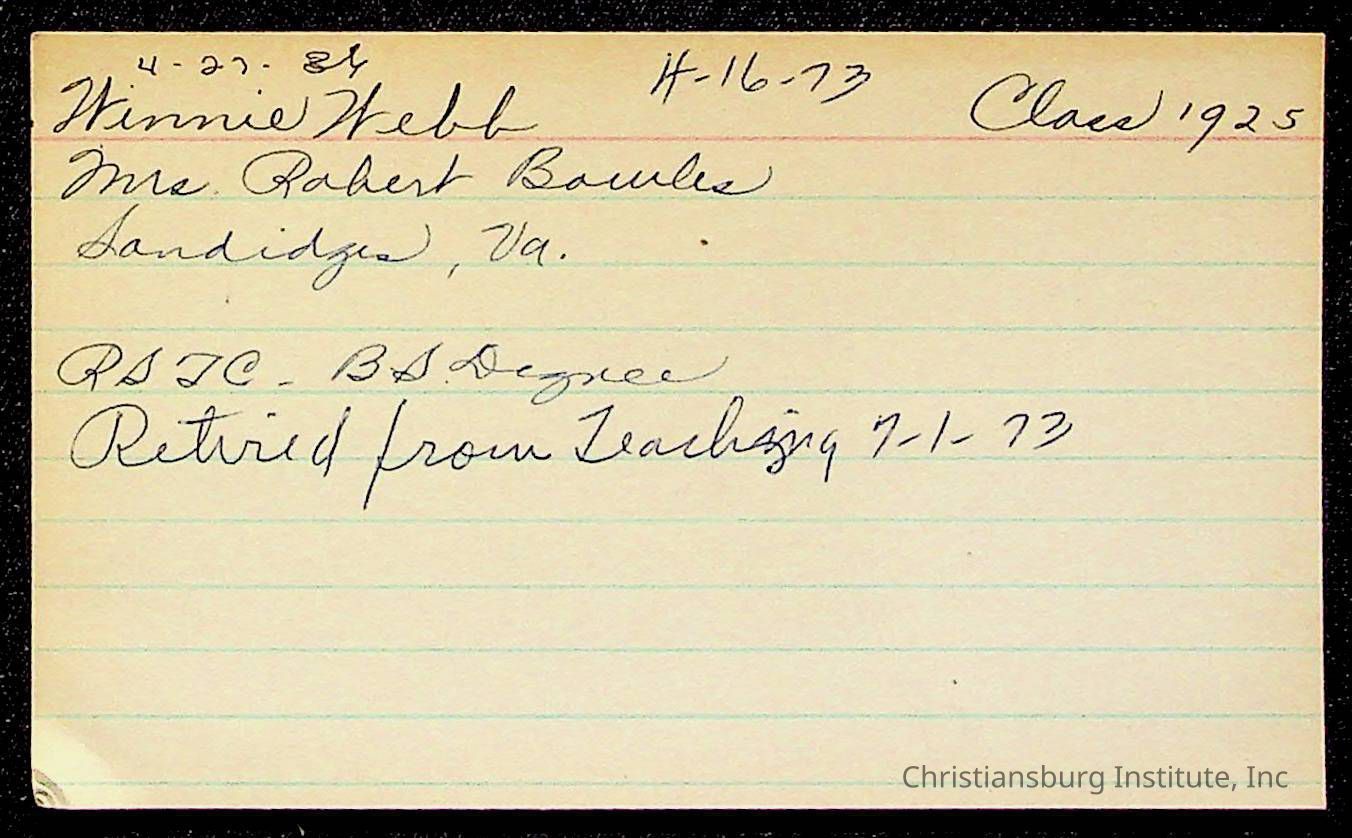 4-27-86
4-16-73
Winnie Webb
Class 1925
Mrs. Robert Bowles
Sandidges, Va.
RSTC - BS Degree
Retired from Teaching 7-1-73
Christiansburg Institute, Inc